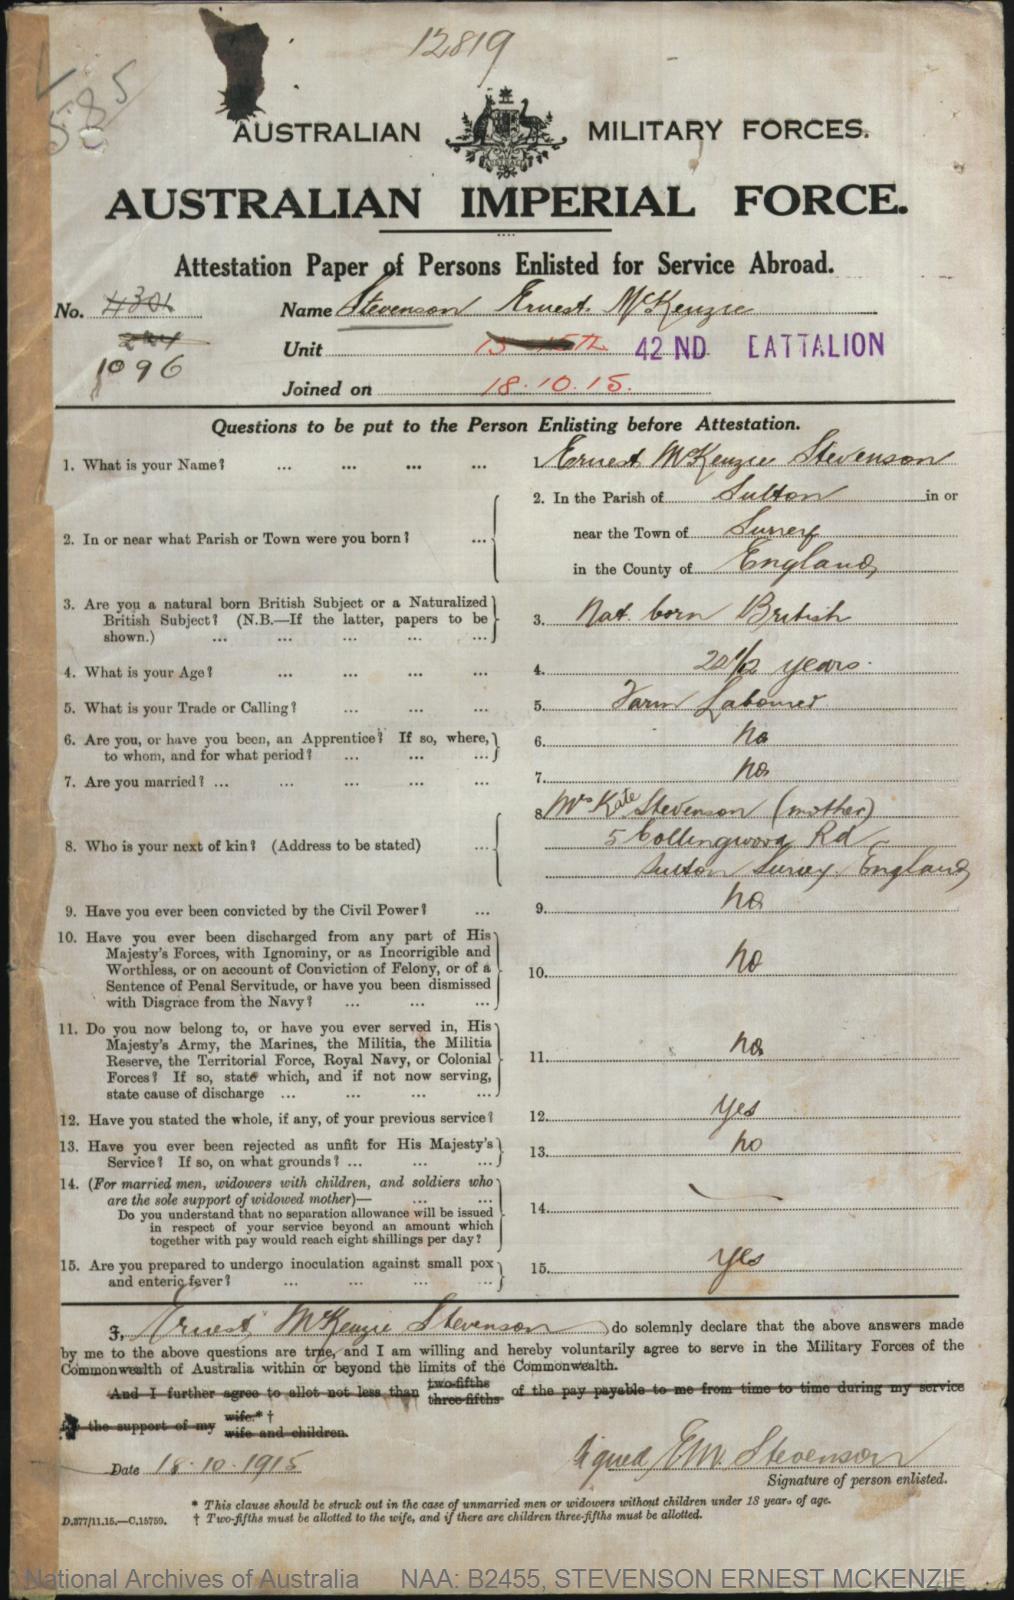 12819
585
AUSTRALIAN MILITARY FORCES.
AUSTRALIAN IMPERIAL FORCE.
Attestation Paper of Persons Enlisted for Service Abroad.
No. Name Stevenson Ernest McKenzie
1096
Unit 15 15th 42ND BATTALION
Joined on 18.10.15.
Questions to be put to the Person Enlisting before Attestation.
1. What is your Name? ... ... ... ... 1. Ernest McKenzie Stevenson
2. In or near what Parish or Town were you born? ... 2. In the Parish of Sutton in or
near the Town of Surrey
in the County of England
3. Are you a natural born British Subject or a Naturalized
British Subject? (N.B.—If the latter, papers to be
shown.) ... ... ... ... ... 3. Nat. born British
4. What is your Age? ... ... ... ... 4. 20 1/12 years.
5. What is your Trade or Calling? ... ... ... 5. Farm Labourer
6. Are you, or have you been, an Apprentice? If so, where,
to whom, and for what period? ... ... ... 6. No
7. Are you married? ... ... ... ... ... 7. No
8. Who is your next of kin? (Address to be stated) ... 8. Mrs Kate Stevenson (mother)
5 Collingwood Rd
Sutton Surrey England
9. Have you ever been convicted by the Civil Power? ... 9. No
10. Have you ever been discharged from any part of His
Majesty's Forces, with Ignominy, or as Incorrigible and
Worthless, or on account of Conviction of Felony, or of a
Sentence of Penal Servitude, or have you been dismissed
with Disgrace from the Navy? ... ... ... 10. No
11. Do you now belong to, or have you ever served in, His
Majesty's Army, the Marines, the Militia, the Militia
Reserve, the Territorial Force, Royal Navy, or Colonial
Forces? If so, state which, and if not now serving,
state cause of discharge ... ... ... ... 11. No
12. Have you stated the whole, if any, of your previous service? 12. Yes
13. Have you ever been rejected as unfit for His Majesty's
Service? If so, on what grounds? ... ... ... 13. No
14. (For married men, widowers with children, and soldiers who
are the sole support of widowed mother)— ... ...
Do you understand that no separation allowance will be issued
in respect of your service beyond an amount which
together with pay would reach eight shillings per day? 14.
15. Are you prepared to undergo inoculation against small pox
and enteric fever? ... ... ... ... 15. Yes
I, Ernest McKenzie Stevenson do solemnly declare that the above answers made
by me to the above questions are true, and I am willing and hereby voluntarily agree to serve in the Military Forces of the
Commonwealth of Australia within or beyond the limits of the Commonwealth.
And I further agree to allot not less than two-fifths three-fifths of the pay payable to me from time to time during my service
the support of my wife.*† wife and children.
Date 18.10.1915 Signed E M Stevenson
Signature of person enlisted.
* This clause should be struck out in the case of unmarried men or widowers without children under 18 years of age.
D.377/11.15.—C.15759. † Two-fifths must be allotted to the wife, and if there are children three-fifths must be allotted.
National Archives of Australia NAA: B2455, STEVENSON ERNEST MCKENZIE